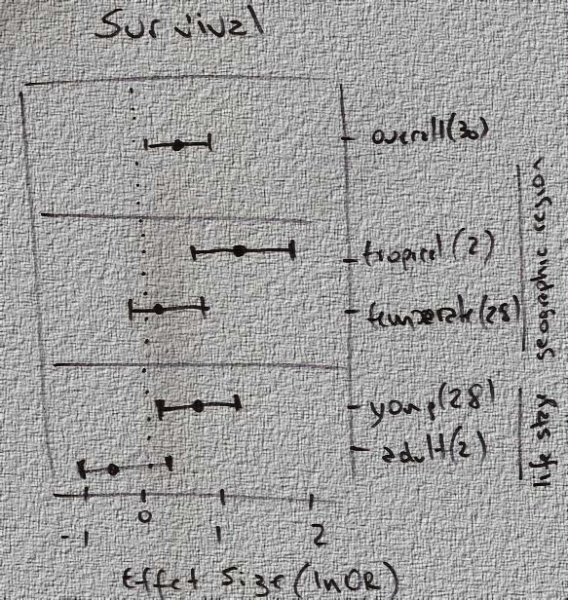 Survival
overall(30)
tropical (2)
temperate(28)
geographic region
young(28)
adult(2)
life stag
-1 0 1 2
Effet Size (lnOR)